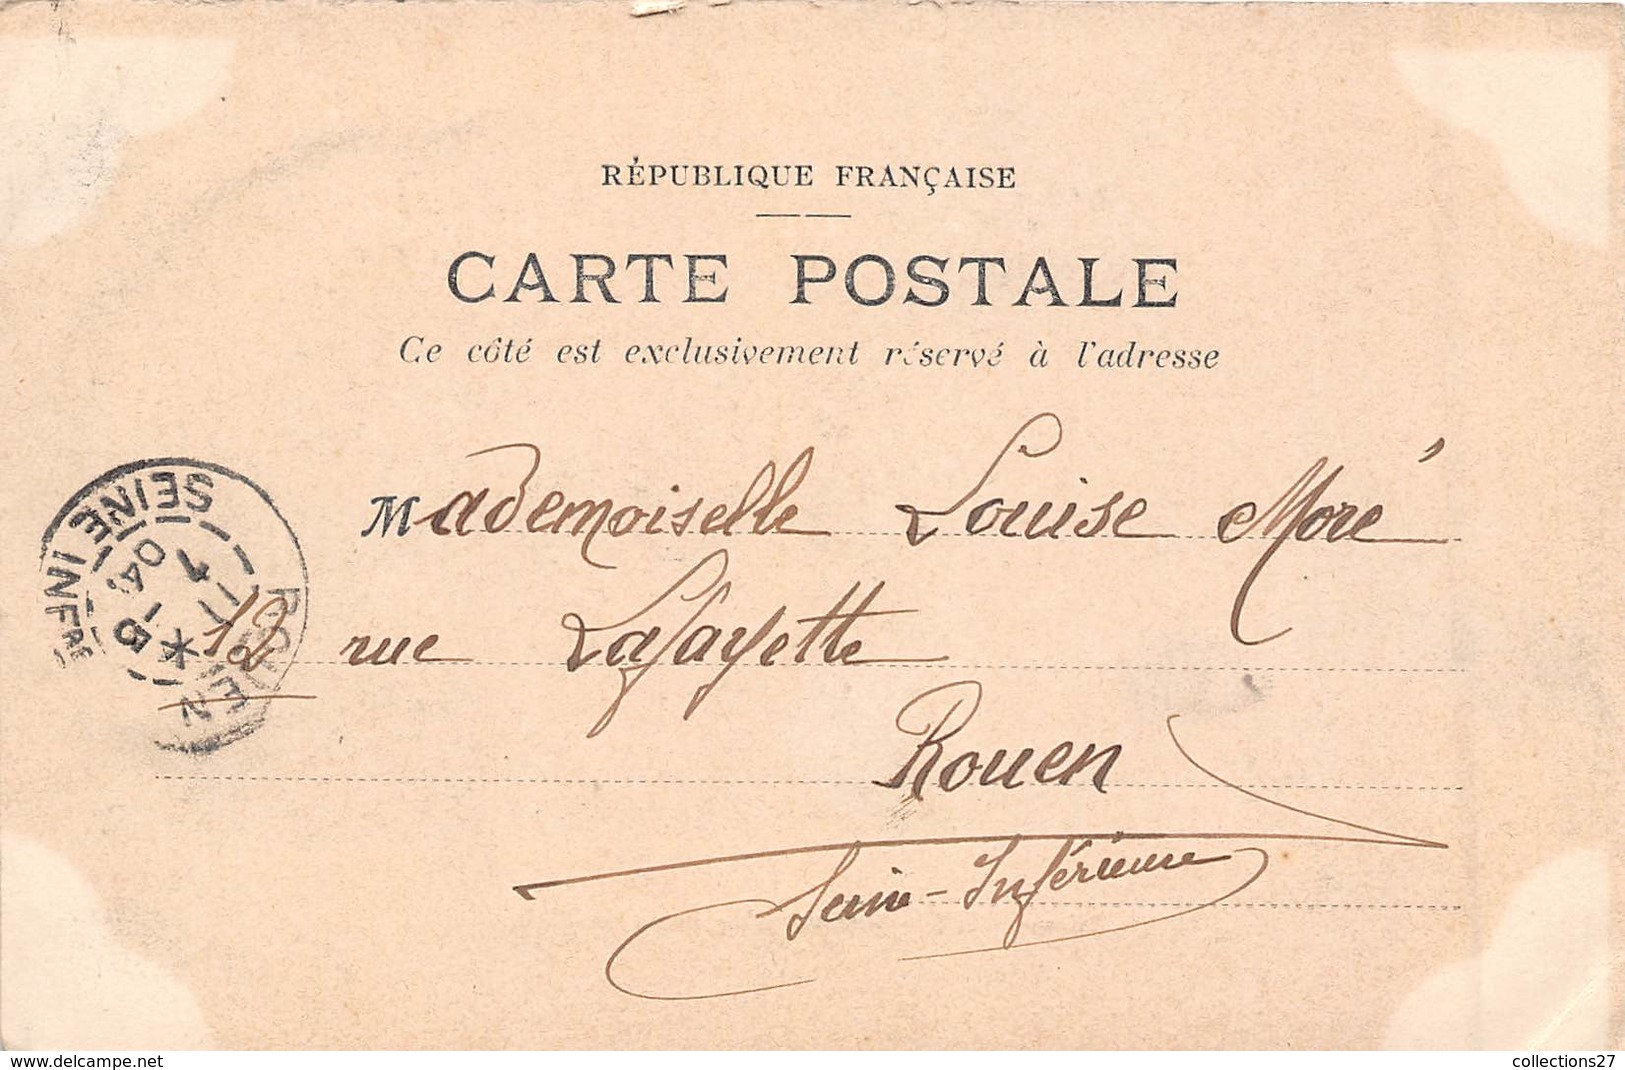 RÉPUBLIQUE FRANÇAISE
CARTE POSTALE
Ce côté est exclusivement réservé à l'adresse
Mademoiselle Louise Moré
12 rue Lafayette
Rouen
Seine-Inférieure
ROUEN
SEINE INFRE
04
www.delcampe.net
collections27